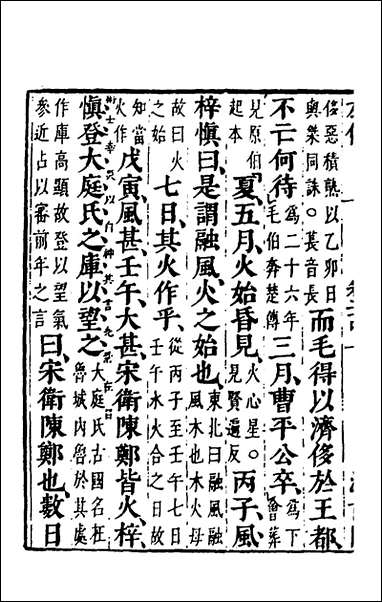 侈惡積熟以乙卯日
與桀同誅○萇音長
而毛得以濟侈於王都
不亡何待
爲二十六年
毛伯奔楚傳
三月曹平公卒
爲下
會葬
見原伯
起本
夏五月火始昏見
火心星○
見賢遍反
丙子風
梓慎曰是謂融風火之始也
東北曰融風融
風木也木火母
故曰火
之始
七日其火作乎
從丙子至壬午七日
壬午水火合之日故
知當
火作
戊寅風甚壬午大甚宋衛陳鄭皆火梓
慎登大庭氏之庫以望之
大庭氏古國名在
魯城內魯於其處
作庫高顯故登以望氣
參近占以審前年之言
曰宋衛陳鄭也數日